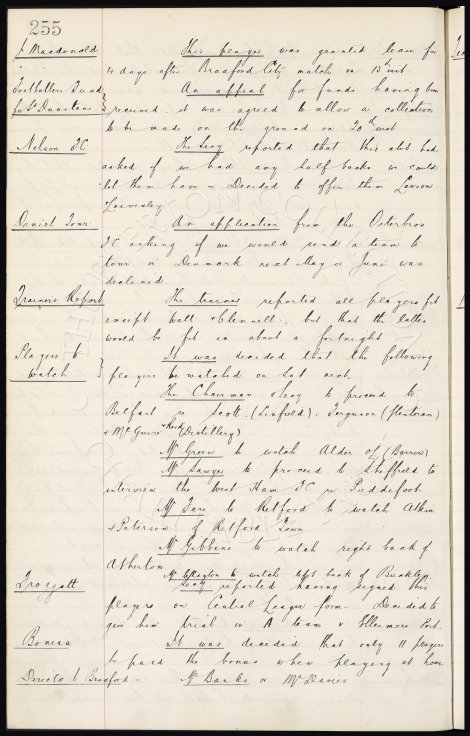 255
J Macdonald This player was granted leave for
4 days after Bradford City match on 13th inst.
Footballers Fund An appeal for funds having been
for St Dunstans } received it was agreed to allow a collection
to be made on the ground on 20th inst
Nelson FC The Secy reported that this club had
asked if we had any half backs we could
let them have – Decided to offer them Lawson
Leivesley
Danish Tour An application from the Osterbros
FC asking if we would send a team to
tour in Denmark next May or June was
declined.
Trainers Report The trainer reported all players fit
except Wall & Clennell, but that the latter
would be fit in about a fortnight
Players to It was decided that the following
watch } players be watched on Sat next.
The Chairman & Secy to proceed to
Belfast re Scott (Linfield). Ferguson (Glentoran)
& McGuire & Reid (Distillery)
Mr Green to watch Alder of (Barrow)
Mr Sawyer to proceed to Sheffield to
interview the West Ham FC re Puddefoot
Mr to Retford to watch Atkin
& Paterson of Retford Town.
Mr Gibbins to watch right back of
Atherton
Mr to watch left back of Buckley
Froggatt Secy reported having signed this
player on Central League form – Decided to
give him trial in A team v Ellesmere Port.
Bonus It was decided that only 11 players
be paid the bonus when playing at home
Director to Bradford – Mr Banks or Mr Davies